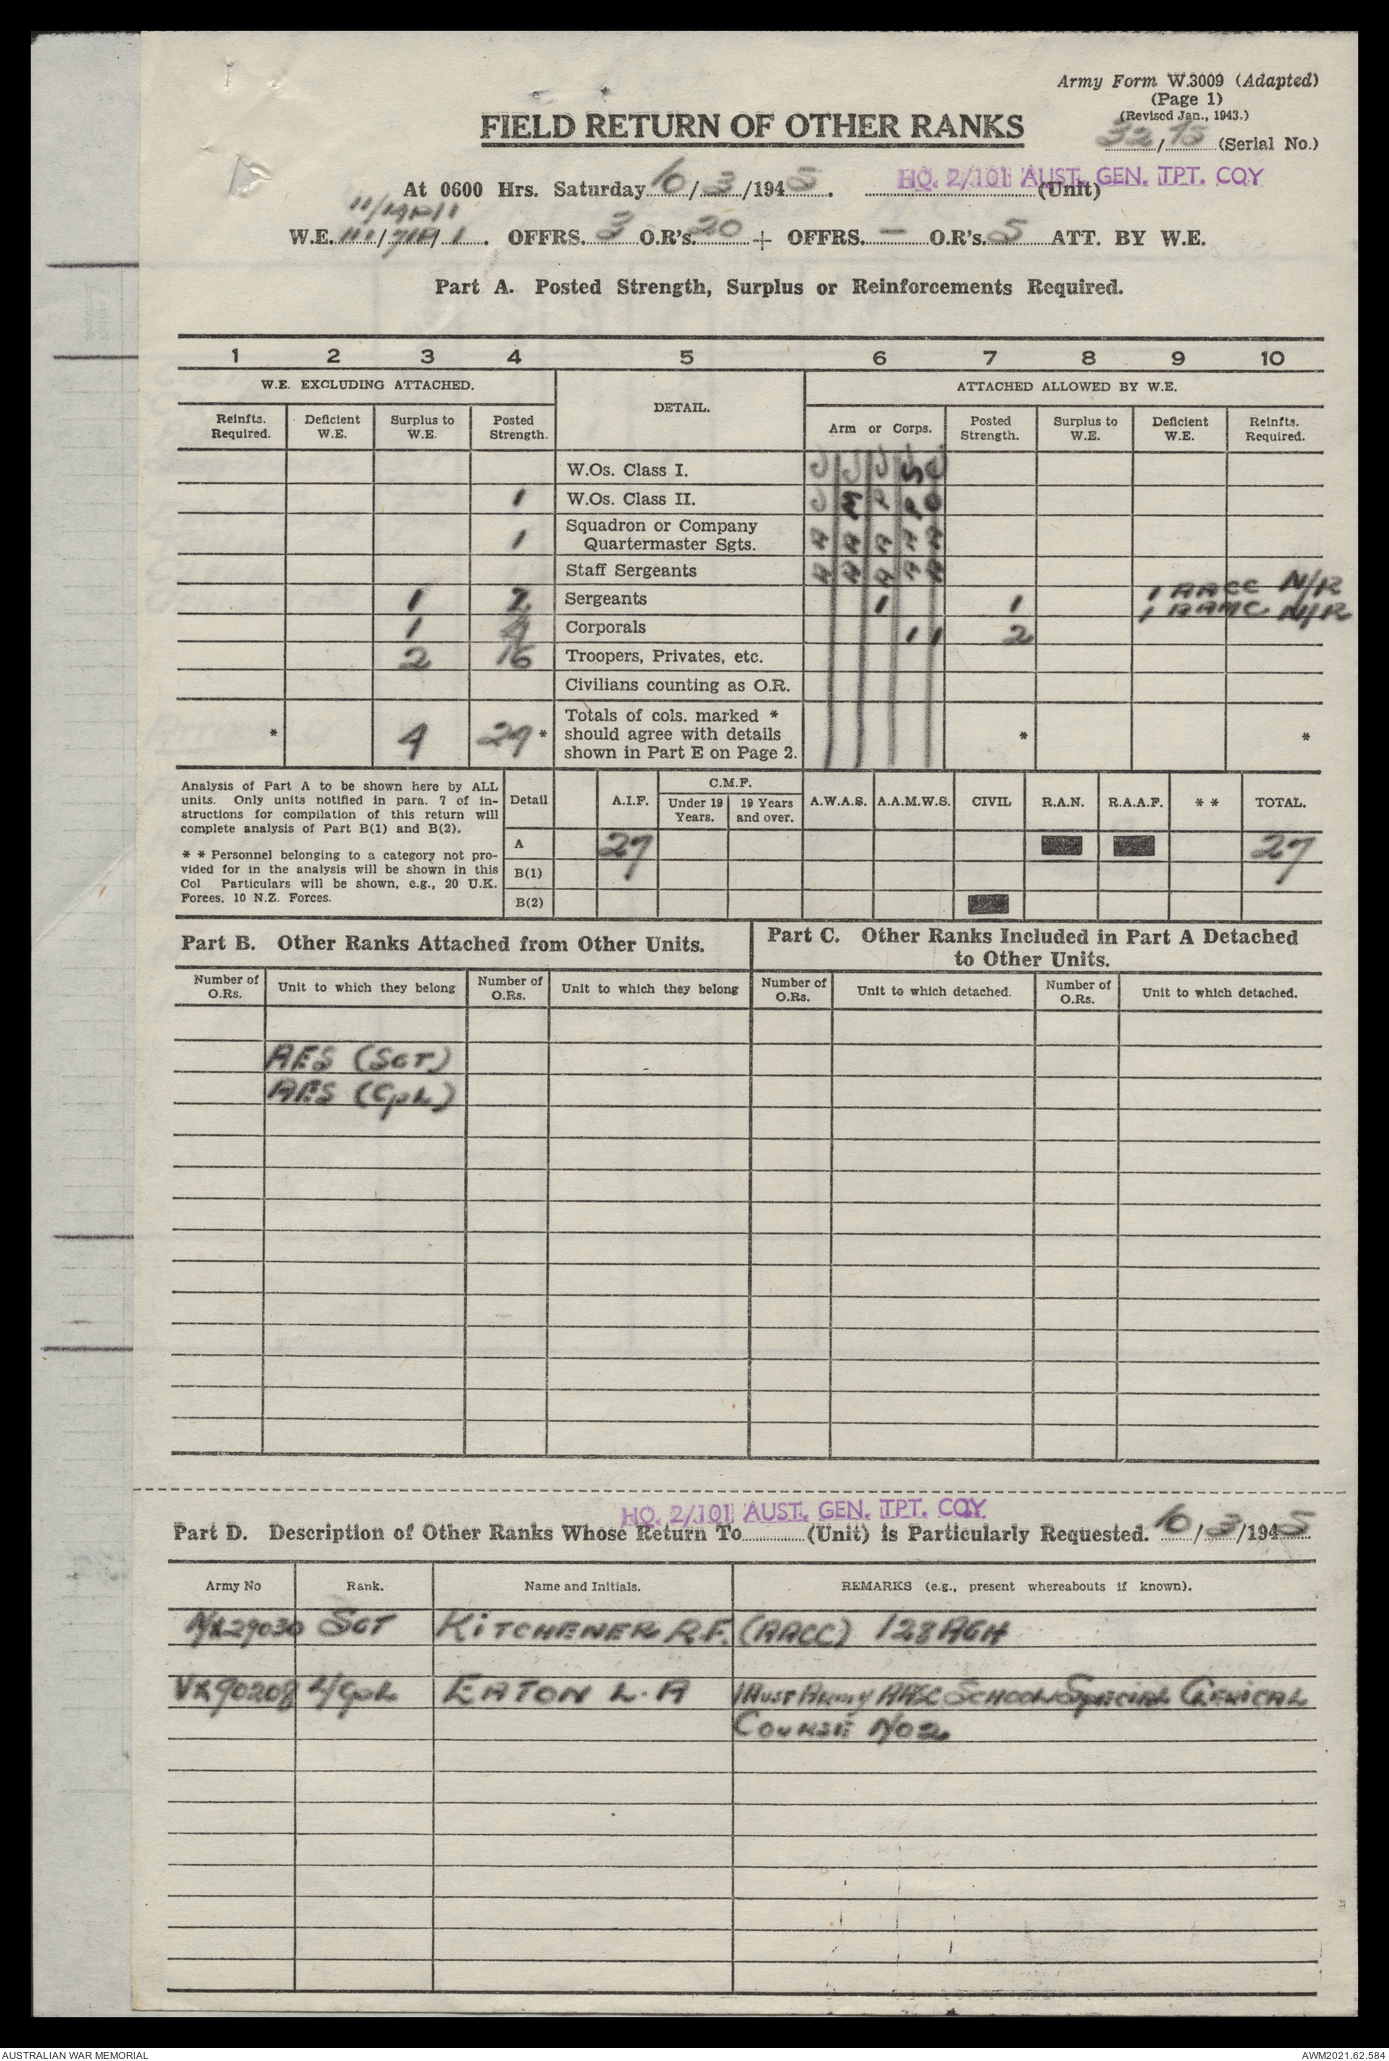 Army Form W.3009 (Adapted)
(Page 1)
(Revised Jan., 1943.)
FIELD RETURN OF OTHER RANKS
32/75 (Serial No.)
At 0600 Hrs. Saturday 10/3/1945. HQ. 2/101 AUST. GEN. TPT. COY (Unit)
W.E. OFFRS. 3 O.R's. 20 + OFFRS. — O.R's. 5 ATT. BY W.E.
Part A. Posted Strength, Surplus or Reinforcements Required.
1 2 3 4 5 6 7 8 9 10
W.E. EXCLUDING ATTACHED. DETAIL. ATTACHED ALLOWED BY W.E.
Reinfts. Required. Deficient W.E. Surplus to W.E. Posted Strength. Arm or Corps. Posted Strength. Surplus to W.E. Deficient W.E. Reinfts. Required.
W.Os. Class I.
1 W.Os. Class II.
1 Squadron or Company Quartermaster Sgts.
Staff Sergeants
1 2 Sergeants 1 1 1 AACC N/R
1 AAMC N/R
1 4 Corporals 1 1 2
2 16 Troopers, Privates, etc.
Civilians counting as O.R.
* 4 24 * Totals of cols. marked * should agree with details shown in Part E on Page 2. * *
Analysis of Part A to be shown here by ALL
units. Only units notified in para. 7 of in-
structions for compilation of this return will
complete analysis of Part B(1) and B(2).
* * Personnel belonging to a category not pro-
vided for in the analysis will be shown in this
Col Particulars will be shown, e.g., 20 U.K.
Forces, 10 N.Z. Forces.
Detail A.I.F. C.M.F. Under 19 Years. 19 Years and over. A.W.A.S. A.A.M.W.S. CIVIL R.A.N. R.A.A.F. * * TOTAL.
A 27 27
B(1)
B(2)
Part B. Other Ranks Attached from Other Units.
Part C. Other Ranks Included in Part A Detached
to Other Units.
Number of O.Rs. Unit to which they belong Number of O.Rs. Unit to which they belong Number of O.Rs. Unit to which detached. Number of O.Rs. Unit to which detached.
AES (SGT)
AES (Cpl)
HQ. 2/101 AUST. GEN. TPT. COY
Part D. Description of Other Ranks Whose Return To (Unit) is Particularly Requested. 10/3/1945
Army No Rank. Name and Initials. REMARKS (e.g., present whereabouts if known).
NX29030 SGT KITCHENER R.F. (AACC) 128 AGH
VX90208 L/Cpl EATON L.A 1 Aust Army AASC School Special Clerical
Course No 2
AUSTRALIAN WAR MEMORIAL
AWM2021.62.584